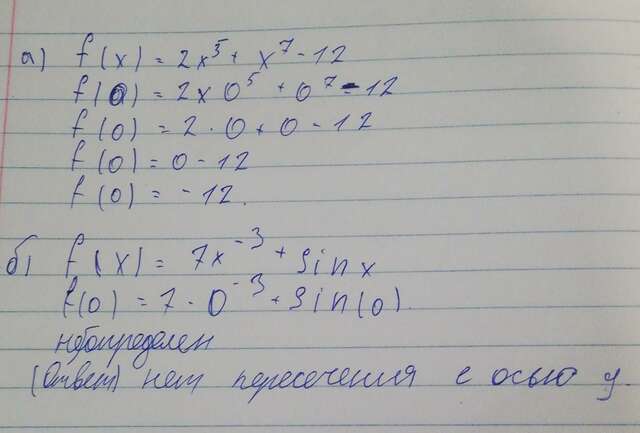 а) f(x) = 2x⁵ + x⁷ - 12
f(0) = 2 x 0⁵ + 0⁷ - 12
f(0) = 2 · 0 + 0 - 12
f(0) = 0 - 12
f(0) = - 12.
б) f(x) = 7x⁻³ + sin x
f(0) = 7 · 0⁻³ + sin(0).
неопределен
(Ответ) нет пересечения с осью y.